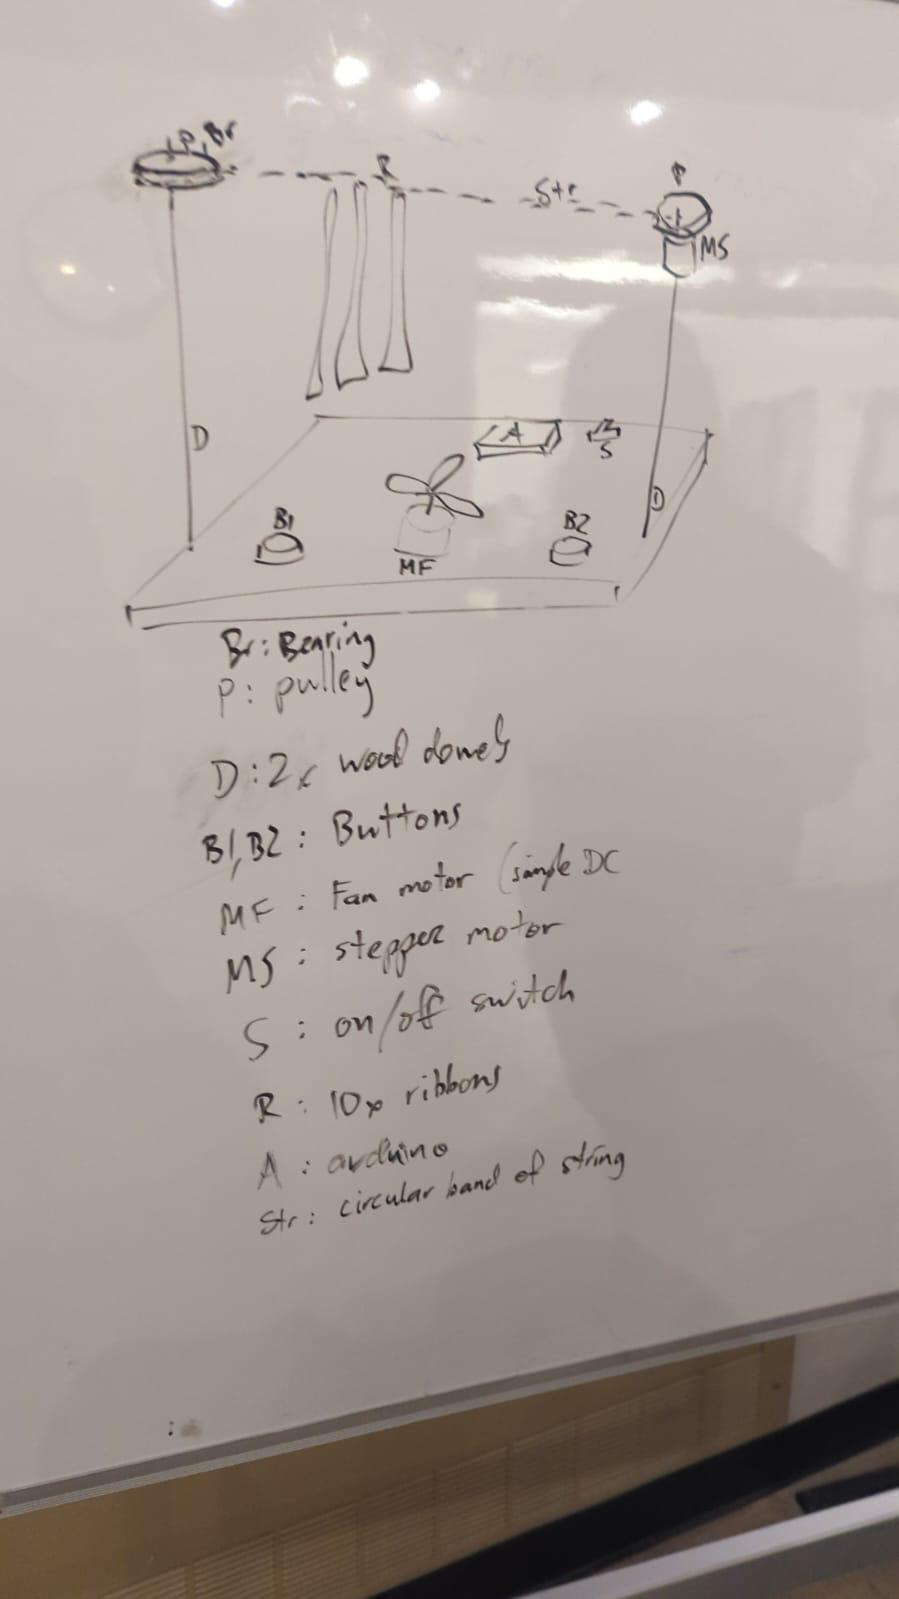 P, Br
R
Str
P
MS
D
A
S
D
B1
B2
MF
Br: Bearing
P: pulley
D: 2x wood dowels
B1, B2: Buttons
MF: Fan motor (simple DC
MS: stepper motor
S: on/off switch
R: 10x ribbons
A: arduino
Str: circular band of string